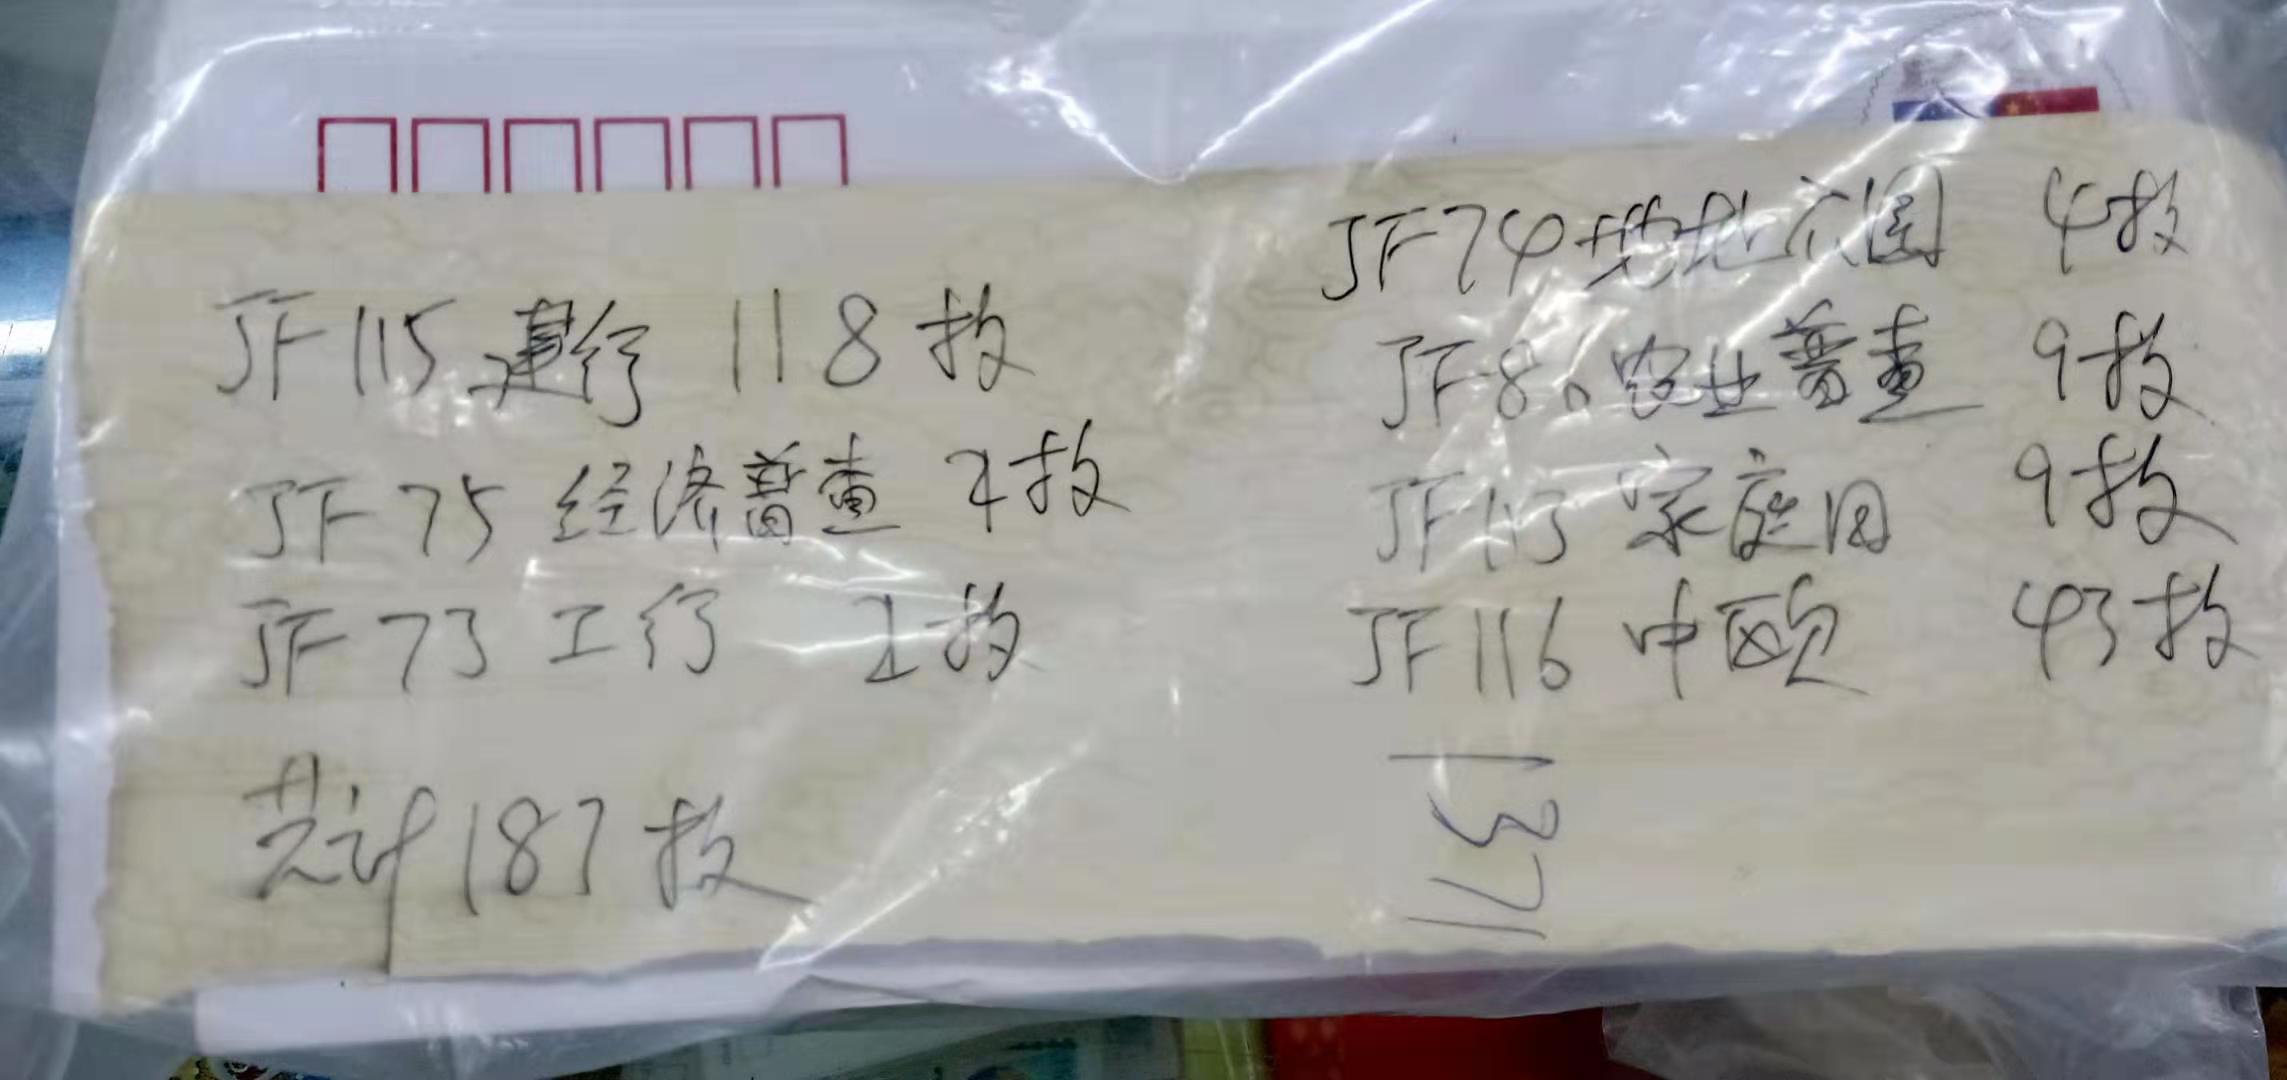 JF115 建行 118枚
JF75 经济普查 2枚
JF73 工行 2枚
共计187枚
JF74 地公园 4枚
JF80 农业普查 9枚
JF113 家庭 9枚
JF116 中欧 43枚
1371